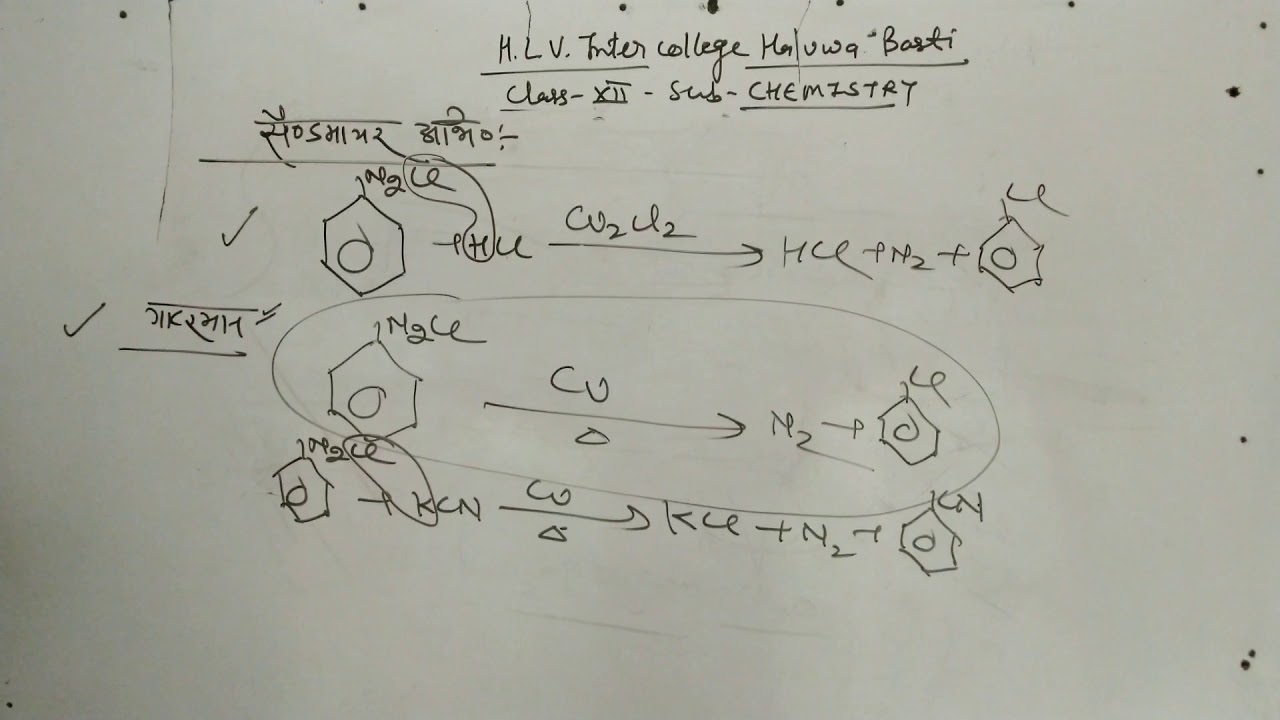 H.L.V. Inter college Haluwa Basti
Class-XII - Sub- CHEMISTRY
सैण्डमायर अभि०:-
N2Cl
+HCl Cu2Cl2 HCl + N2 + Cl
गाटरमान
N2Cl
Cu Δ N2 + Cl
N2Cl
+ KCN Cu Δ KCl + N2 + CN